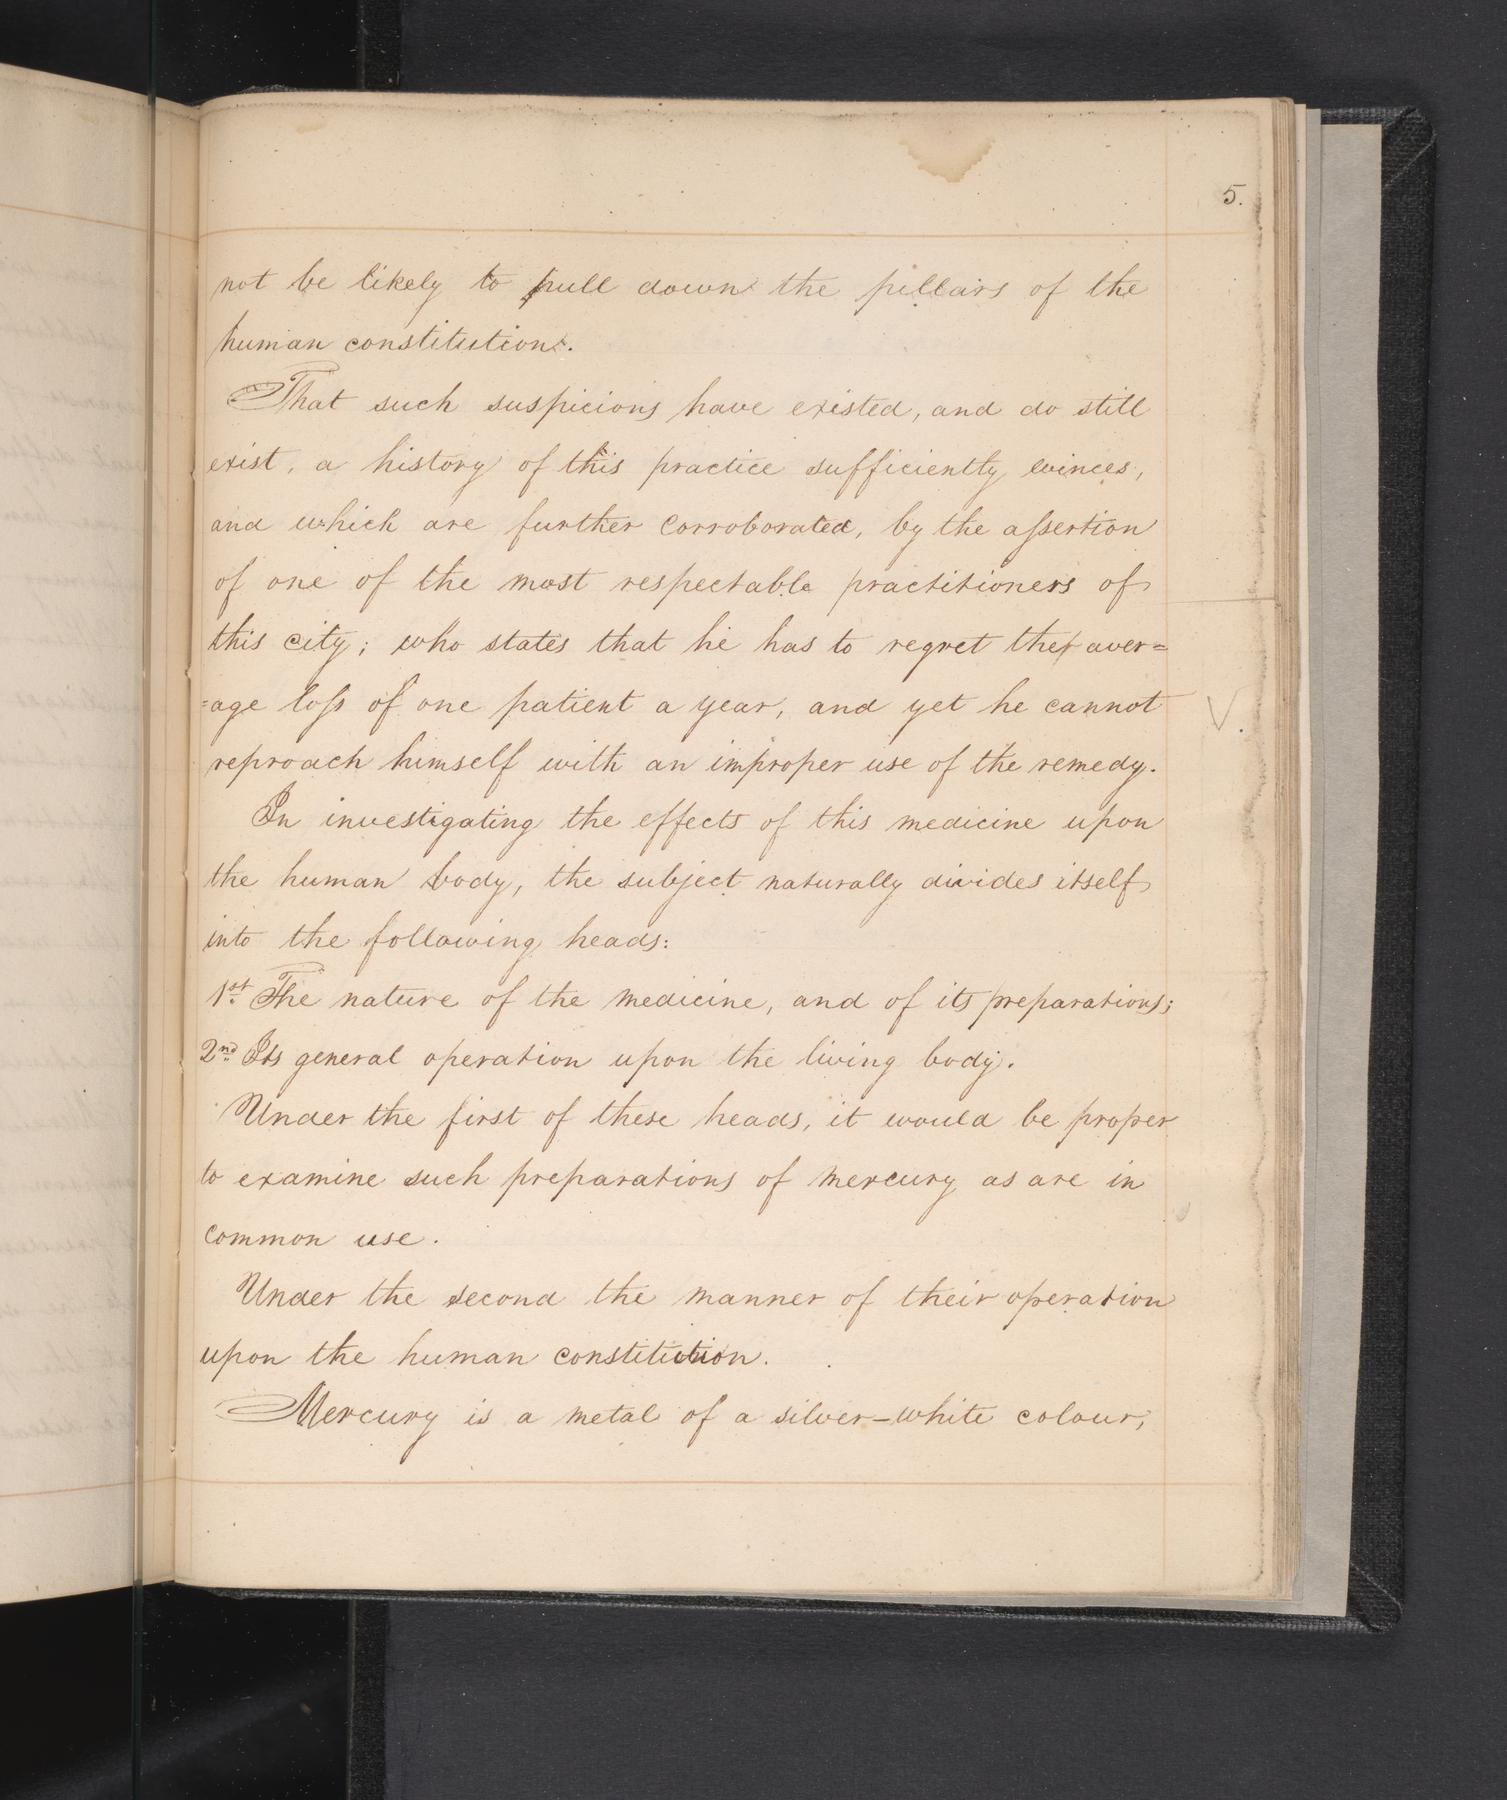 5.
not be likely to pull down the pillars of the
human constitution.
That such suspicions have existed, and do still
exist, a history of this practice sufficiently evinces,
and which are further corroborated, by the aſsertion
of one of the most respectable practitioners of
this city; who states that he has to regret the aver=
=age loſs of one patient a year, and yet he cannot
reproach himself with an improper use of the remedy.
In investigating the effects of this medicine upon
the human body, the subject naturally divides itself
into the following heads:
1st. The nature of the medicine, and of its preparations;
2nd. Its general operation upon the living body.
Under the first of these heads, it would be proper
to examine such preparations of mercury as are in
common use.
Under the second the manner of their operation
upon the human constitution.
Mercury is a metal of a silver-white colour,